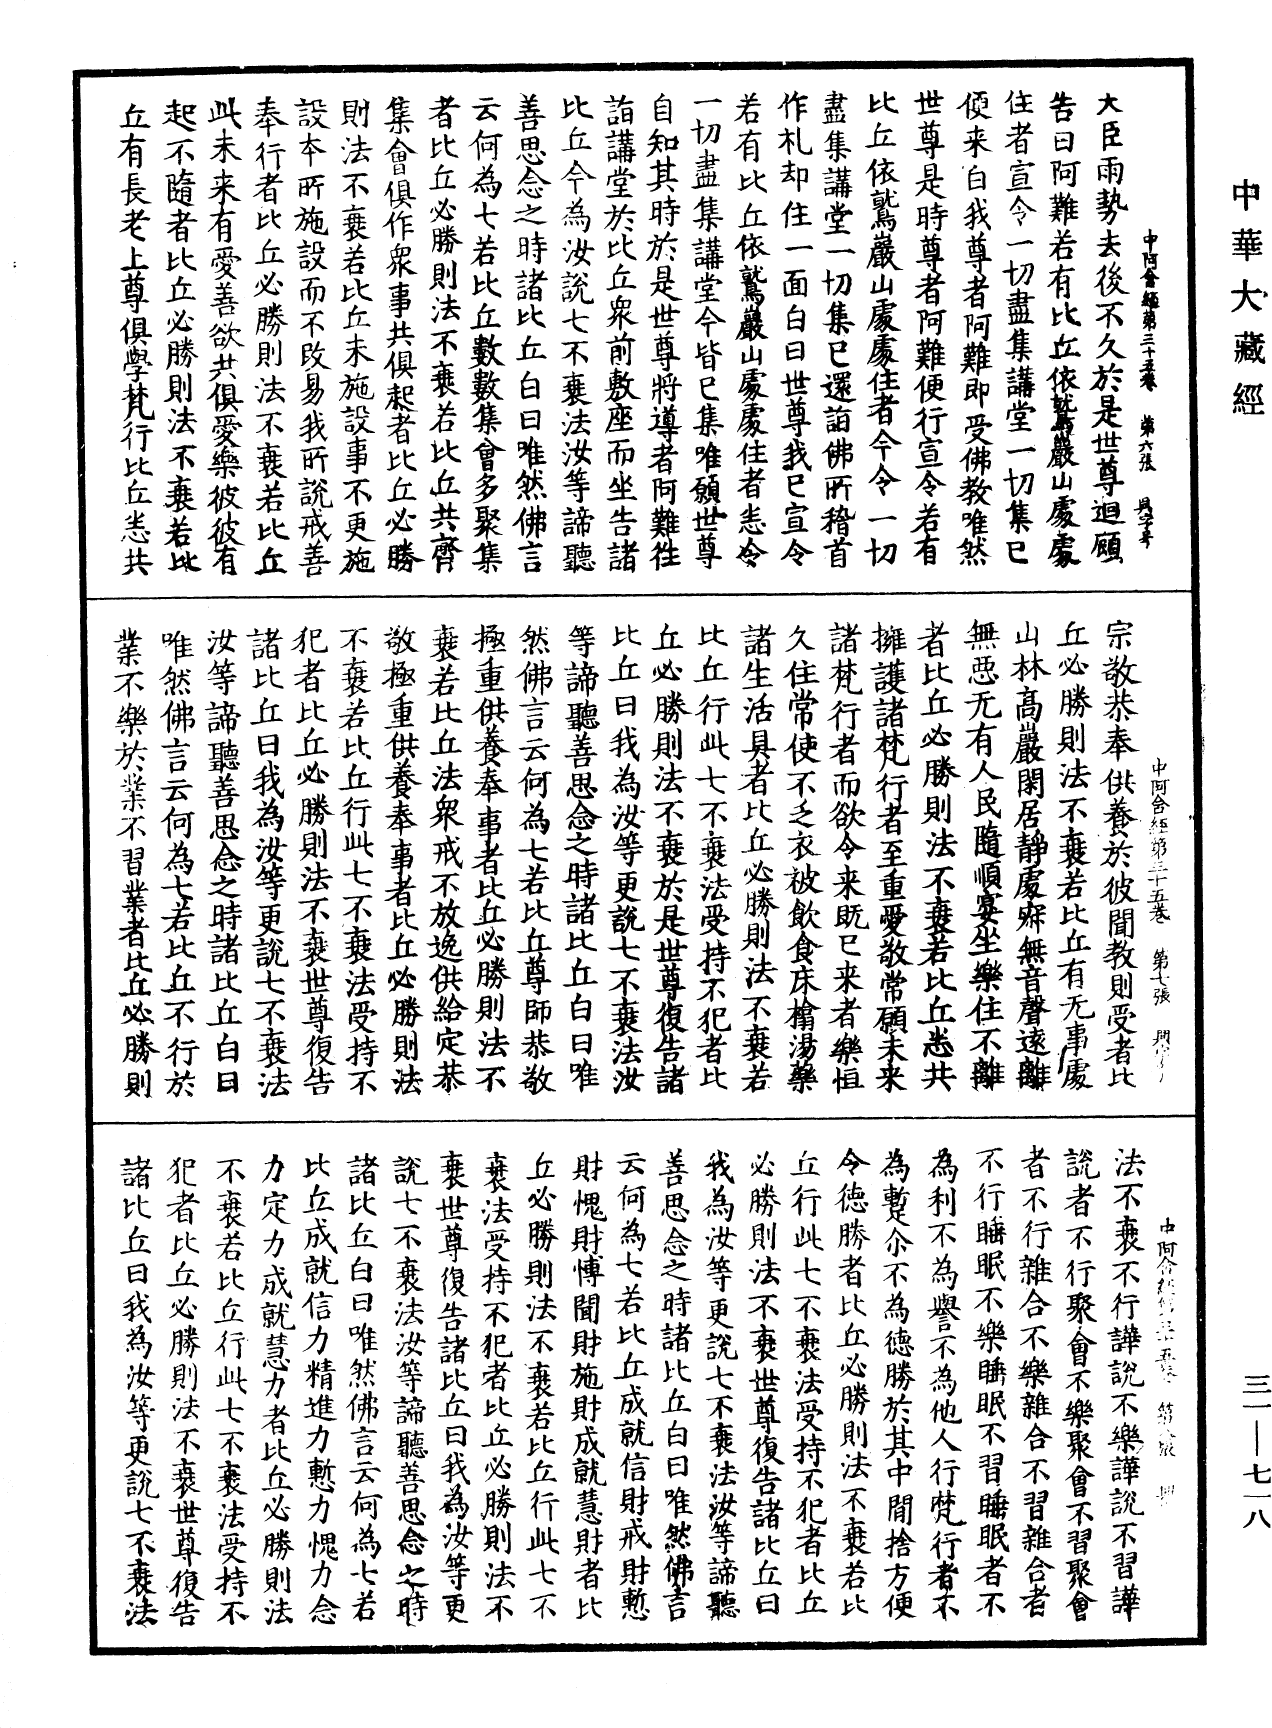 中華大藏經
中阿含經第三十五卷 第六張 興字号
大臣雨勢去後不久於是世尊迴顧
告曰阿難若有比丘依鷲巖山處處
住者宣令一切盡集講堂一切集已
便来白我尊者阿難即受佛教唯然
世尊是時尊者阿難便行宣令若有
比丘依鷲巖山處處住者今令一切
盡集講堂一切集已還詣佛所稽首
作札却住一面白曰世尊我已宣令
若有比丘依鷲巖山處處住者悉令
一切盡集講堂今皆已集唯願世尊
自知其時於是世尊將導者阿難往
詣講堂於比丘衆前敷座而坐告諸
比丘今為汝說七不衰法汝等諦聽
善思念之時諸比丘白曰唯然佛言
云何為七若比丘數數集會多聚集
者比丘必勝則法不衰若比丘共齊
集會俱作衆事共俱起者比丘必勝
則法不衰若比丘未施設事不更施
設本所施設而不改易我所說戒善
奉行者比丘必勝則法不衰若比丘
此未来有愛善欲共俱愛樂彼彼有
起不隨者比丘必勝則法不衰若比
丘有長老上尊俱學梵行比丘悉共
中阿含經第三十五卷 第七張
宗敬恭奉供養於彼聞教則受者比
丘必勝則法不衰若比丘有无事處
山林高巖閑居靜處寂無音聲遠離
無惡无有人民隨順宴坐樂住不離
者比丘必勝則法不衰若比丘悉共
擁護諸梵行者至重愛敬常願未来
諸梵行者而欲令来既已来者樂恒
久住常使不乏衣被飲食床榻湯藥
諸生活具者比丘必勝則法不衰若
比丘行此七不衰法受持不犯者比
丘必勝則法不衰於是世尊復告諸
比丘曰我為汝等更說七不衰法汝
等諦聽善思念之時諸比丘白曰唯
然佛言云何為七若比丘尊師恭敬
極重供養奉事者比丘必勝則法不
衰若比丘法衆戒不放逸供給定恭
敬極重供養奉事者比丘必勝則法
不衰若比丘行此七不衰法受持不
犯者比丘必勝則法不衰世尊復告
諸比丘曰我為汝等更說七不衰法
汝等諦聽善思念之時諸比丘白曰
唯然佛言云何為七若比丘不行於
業不樂於業不習業者比丘必勝則
法不衰不行譁說不樂譁說不習譁
說者不行聚會不樂聚會不習聚會
者不行雜合不樂雜合不習雜合者
不行睡眠不樂睡眠不習睡眠者不
為利不為譽不為他人行梵行者不
為蹔尒不為德勝於其中間捨方便
令德勝者比丘必勝則法不衰若比
丘行此七不衰法受持不犯者比丘
必勝則法不衰世尊復告諸比丘曰
我為汝等更說七不衰法汝等諦聽
善思念之時諸比丘白曰唯然佛言
云何為七若比丘成就信財戒財慙
財愧財博聞財施財成就慧財者比
丘必勝則法不衰若比丘行此七不
衰法受持不犯者比丘必勝則法不
衰世尊復告諸比丘曰我為汝等更
說七不衰法汝等諦聽善思念之時
諸比丘白曰唯然佛言云何為七若
比丘成就信力精進力慙力愧力念
力定力成就慧力者比丘必勝則法
不衰若比丘行此七不衰法受持不
犯者比丘必勝則法不衰世尊復告
諸比丘曰我為汝等更說七不衰法
三一—七一八